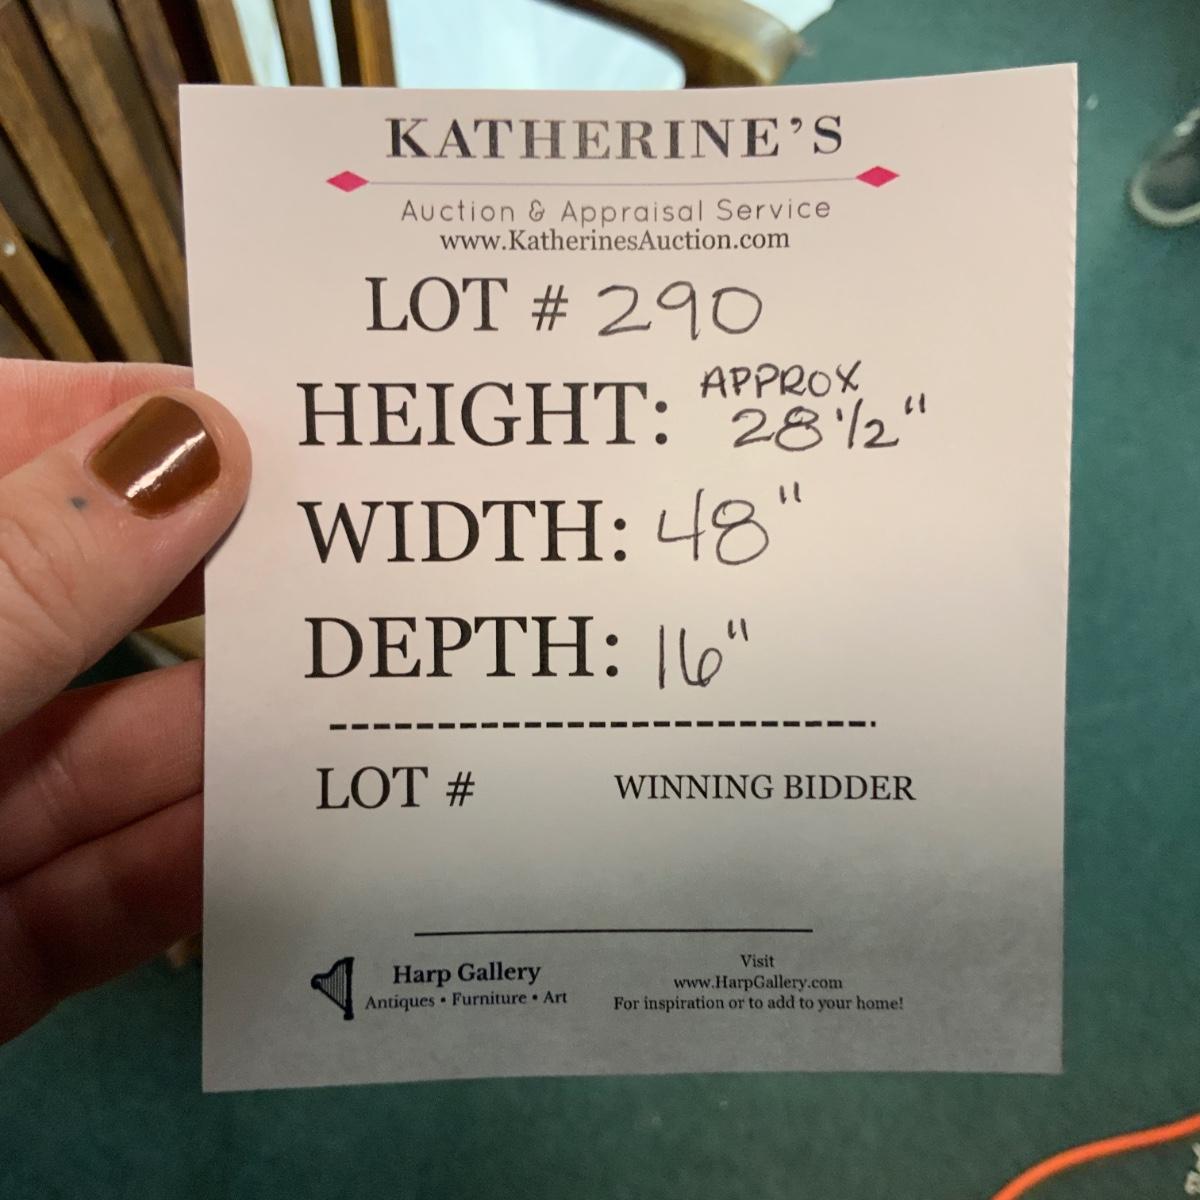 KATHERINE'S
Auction & Appraisal Service
www.KatherinesAuction.com
LOT # 290
HEIGHT: APPROX 28 1/2"
WIDTH: 48"
DEPTH: 16"
LOT # WINNING BIDDER
Harp Gallery
Antiques • Furniture • Art
Visit
www.HarpGallery.com
For inspiration or to add to your home!